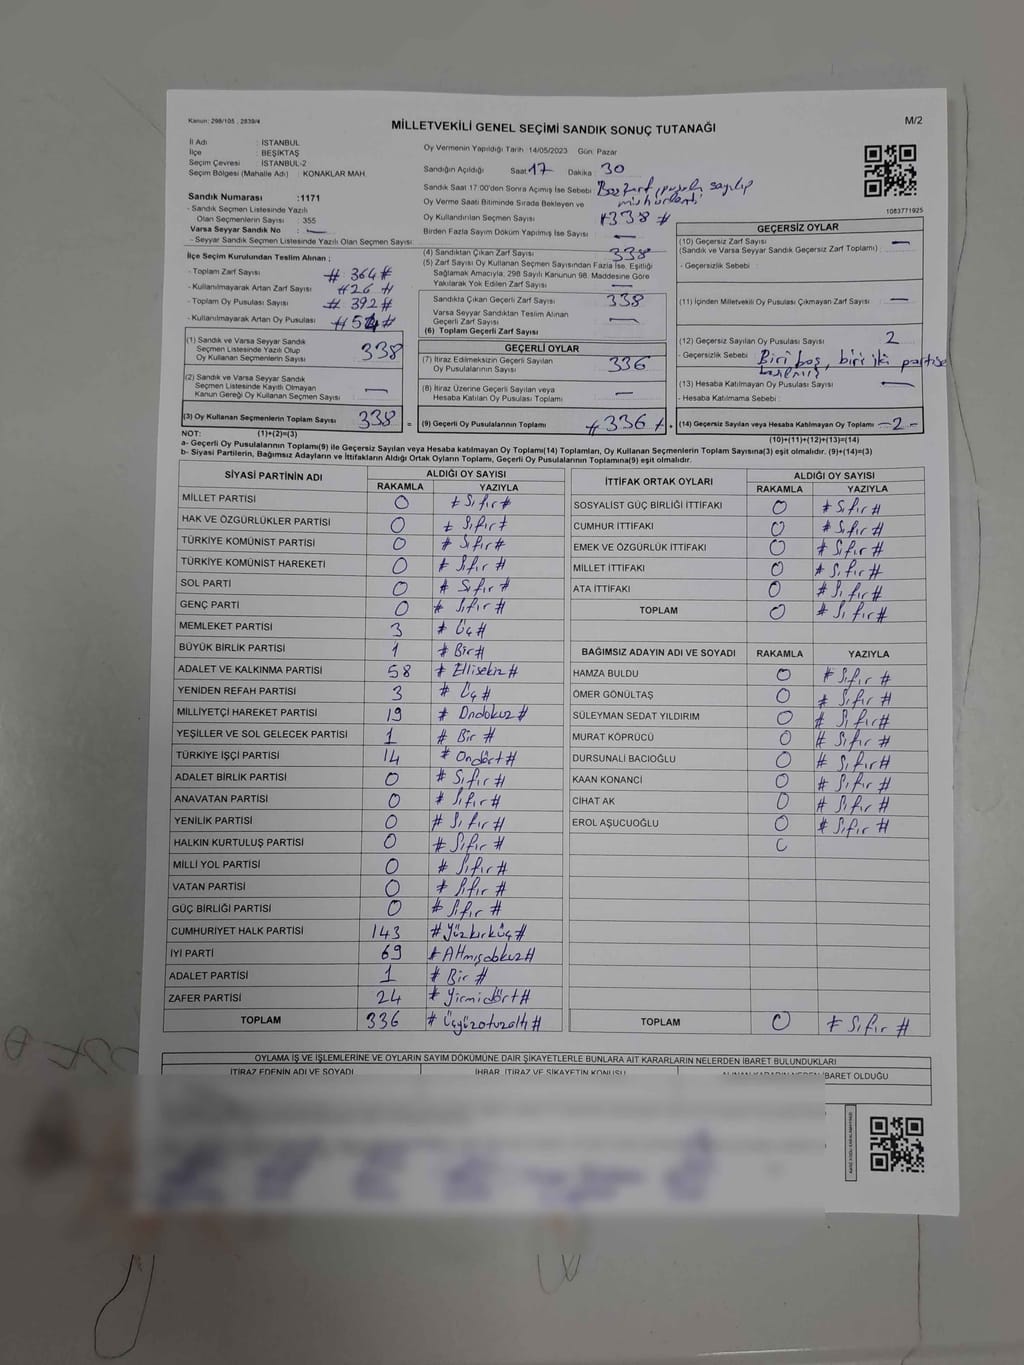 Kanun: 298/105 , 2839/4
MİLLETVEKİLİ GENEL SEÇİMİ SANDIK SONUÇ TUTANAĞI
M/2
İl Adı : İSTANBUL
İlçe : BEŞİKTAŞ
Seçim Çevresi : İSTANBUL-2
Seçim Bölgesi (Mahalle Adı) : KONAKLAR MAH.
Sandık Numarası :1171
- Sandık Seçmen Listesinde Yazılı
Olan Seçmenlerin Sayısı : 355
Varsa Seyyar Sandık No : —
- Seyyar Sandık Seçmen Listesinde Yazılı Olan Seçmen Sayısı:
Oy Vermenin Yapıldığı Tarih 14/05/2023 Gün: Pazar
Sandığın Açıldığı Saat 17 Dakika 30
Sandık Saat 17:00'den Sonra Açımış İse Sebebi: Boş zarf, pusula sayılıp
Oy Verme Saati Bitiminde Sırada Bekleyen ve mühürlendi
Oy Kullandırılan Seçmen Sayısı #338#
Birden Fazla Sayım Döküm Yapılmış İse Sayısı —
1083771925
İlçe Seçim Kurulundan Teslim Alınan ;
- Toplam Zarf Sayısı # 364#
- Kullanılmayarak Artan Zarf Sayısı #26 #
- Toplam Oy Pusulası Sayısı # 392#
- Kullanılmayarak Artan Oy Pusulası #54#
(1) Sandık ve Varsa Seyyar Sandık
Seçmen Listesinde Yazılı Olup
Oy Kullanan Seçmenlerin Sayısı 338
(2) Sandık ve Varsa Seyyar Sandık
Seçmen Listesinde Kayıtlı Olmayan
Kanun Gereği Oy Kullanan Seçmen Sayısı —
(3) Oy Kullanan Seçmenlerin Toplam Sayısı 338 =
(1)+(2)=(3)
(4) Sandıktan Çıkan Zarf Sayısı 338
(5) Zarf Sayısı Oy Kullanan Seçmen Sayısından Fazla İse, Eşitliği
Sağlamak Amacıyla; 298 Sayılı Kanunun 98. Maddesine Göre
Yakılarak Yok Edilen Zarf Sayısı —
Sandıkta Çıkan Geçerli Zarf Sayısı 338
Varsa Seyyar Sandıktan Teslim Alınan
Geçerli Zarf Sayısı —
(6) Toplam Geçerli Zarf Sayısı
GEÇERLİ OYLAR
(7) İtiraz Edilmeksizin Geçerli Sayılan
Oy Pusulalarının Sayısı 336
(8) İtiraz Üzerine Geçerli Sayılan veya
Hesaba Katılan Oy Pusulaları Toplamı —
(9) Geçerli Oy Pusulalarının Toplamı #336# +
GEÇERSİZ OYLAR
(10) Geçersiz Zarf Sayısı —
(Sandık ve Varsa Seyyar Sandık Geçersiz Zarf Toplamı)
- Geçersizlik Sebebi :
(11) İçinden Milletvekili Oy Pusulası Çıkmayan Zarf Sayısı —
(12) Geçersiz Sayılan Oy Pusulası Sayısı 2
- Geçersizlik Sebebi: Biri boş, biri iki partiye
basılmış
(13) Hesaba Katılmayan Oy Pusulası Sayısı —
- Hesaba Katılmama Sebebi :
(14) Geçersiz Sayılan veya Hesaba Katılmayan Oy Toplamı -2-
(10)+(11)+(12)+(13)=(14)
NOT:
a- Geçerli Oy Pusulalarının Toplamı(9) ile Geçersiz Sayılan veya Hesaba katılmayan Oy Toplamı(14) Toplamları, Oy Kullanan Seçmenlerin Toplam Sayısına(3) eşit olmalıdır. (9)+(14)=(3)
b- Siyasi Partilerin, Bağımsız Adayların ve İttifakların Aldığı Ortak Oyların Toplamı, Geçerli Oy Pusulalarının Toplamına(9) eşit olmalıdır.
SİYASİ PARTİNİN ADI ALDIĞI OY SAYISI
RAKAMLA YAZIYLA
MİLLET PARTİSİ 0 # Sıfır #
HAK VE ÖZGÜRLÜKLER PARTİSİ 0 # Sıfır #
TÜRKİYE KOMÜNİST PARTİSİ 0 # Sıfır #
TÜRKİYE KOMÜNİST HAREKETİ 0 # Sıfır #
SOL PARTİ 0 # Sıfır #
GENÇ PARTİ 0 # Sıfır #
MEMLEKET PARTİSİ 3 # Üç #
BÜYÜK BİRLİK PARTİSİ 1 # Bir #
ADALET VE KALKINMA PARTİSİ 58 # Ellisekiz #
YENİDEN REFAH PARTİSİ 3 # Üç #
MİLLİYETÇİ HAREKET PARTİSİ 19 # Ondokuz #
YEŞİLLER VE SOL GELECEK PARTİSİ 1 # Bir #
TÜRKİYE İŞÇİ PARTİSİ 14 # Ondört #
ADALET BİRLİK PARTİSİ 0 # Sıfır #
ANAVATAN PARTİSİ 0 # Sıfır #
YENİLİK PARTİSİ 0 # Sıfır #
HALKIN KURTULUŞ PARTİSİ 0 # Sıfır #
MİLLİ YOL PARTİSİ 0 # Sıfır #
VATAN PARTİSİ 0 # Sıfır #
GÜÇ BİRLİĞİ PARTİSİ 0 # Sıfır #
CUMHURİYET HALK PARTİSİ 143 # Yüzkırküç #
İYİ PARTİ 69 # Altmışdokuz #
ADALET PARTİSİ 1 # Bir #
ZAFER PARTİSİ 24 # Yirmidört #
TOPLAM 336 # Üçyüzotuzaltı #
İTTİFAK ORTAK OYLARI ALDIĞI OY SAYISI
RAKAMLA YAZIYLA
SOSYALİST GÜÇ BİRLİĞİ İTTİFAKI 0 # Sıfır #
CUMHUR İTTİFAKI 0 # Sıfır #
EMEK VE ÖZGÜRLÜK İTTİFAKI 0 # Sıfır #
MİLLET İTTİFAKI 0 # Sıfır #
ATA İTTİFAKI 0 # Sıfır #
TOPLAM 0 # Sıfır #
BAĞIMSIZ ADAYIN ADI VE SOYADI RAKAMLA YAZIYLA
HAMZA BULDU 0 # Sıfır #
ÖMER GÖNÜLTAŞ 0 # Sıfır #
SÜLEYMAN SEDAT YILDIRIM 0 # Sıfır #
MURAT KÖPRÜCÜ 0 # Sıfır #
DURSUNALİ BACIOĞLU 0 # Sıfır #
KAAN KONANCİ 0 # Sıfır #
CİHAT AK 0 # Sıfır #
EROL AŞUCUOĞLU 0 # Sıfır #
TOPLAM 0 # Sıfır #
OYLAMA İŞ VE İŞLEMLERİNE VE OYLARIN SAYIM DÖKÜMÜNE DAİR ŞİKAYETLERLE BUNLARA AİT KARARLARIN NELERDEN İBARET BULUNDUKLARI
İTİRAZ EDENİN ADI VE SOYADI İHBAR, İTİRAZ VE ŞİKAYETİN KONUSU ALINAN KARARIN NEDEN İBARET OLDUĞU